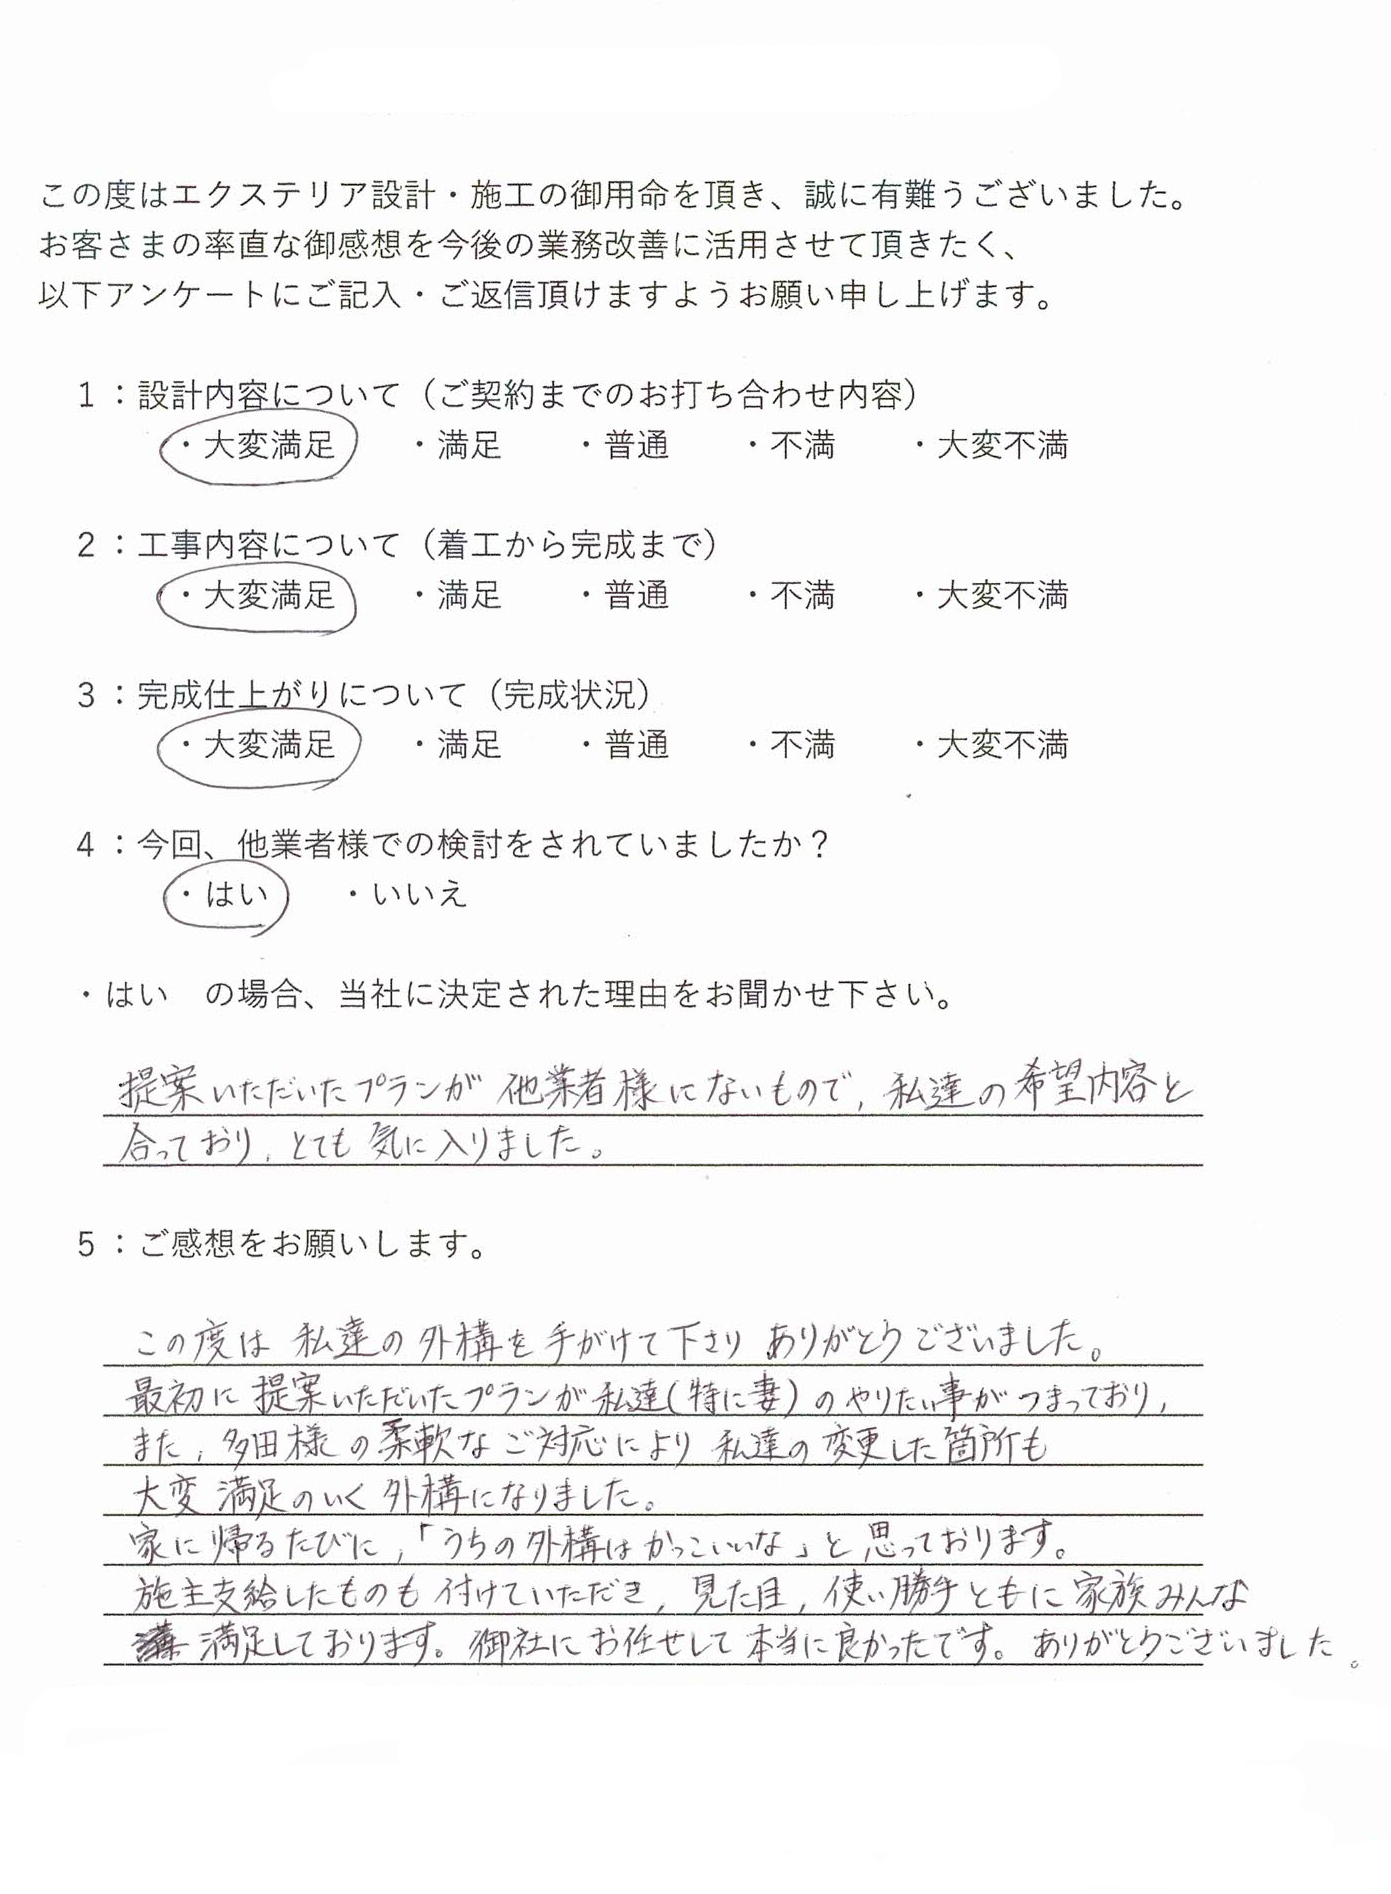 この度はエクステリア設計・施工の御用命を頂き、誠に有難うございました。
お客さまの率直な御感想を今後の業務改善に活用させて頂きたく、
以下アンケートにご記入・ご返信頂けますようお願い申し上げます。
1：設計内容について（ご契約までのお打ち合わせ内容）
・大変満足　・満足　・普通　・不満　・大変不満
2：工事内容について（着工から完成まで）
・大変満足　・満足　・普通　・不満　・大変不満
3：完成仕上がりについて（完成状況）
・大変満足　・満足　・普通　・不満　・大変不満
4：今回、他業者様での検討をされていましたか？
・はい　・いいえ
・はい　の場合、当社に決定された理由をお聞かせ下さい。
提案いただいたプランが他業者様にないもので，私達の希望内容と
合っており，とても気に入りました。
5：ご感想をお願いします。
この度は私達の外構を手がけて下さりありがとうございました。
最初に提案いただいたプランが私達(特に妻)のやりたい事がつまっており，
また，多田様の柔軟なご対応により私達の変更した箇所も
大変満足のいく外構になりました。
家に帰るたびに，「うちの外構はかっこいいな」と思っております。
施主支給したものも付けていただき，見た目，使い勝手ともに家族みんな
満足しております。御社にお任せして本当に良かったです。ありがとうございました。